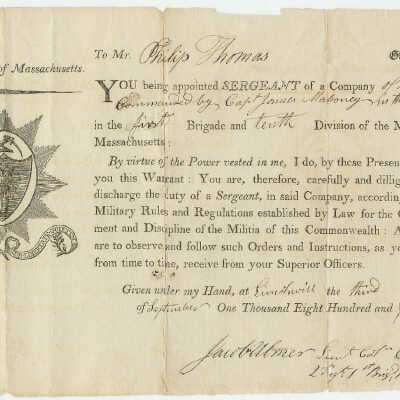 To Mr. Philip Thomas
of Massachusetts.
YOU being appointed SERGEANT of a Company of
Commanded by Capt James Mahoney in th
in the first Brigade and tenth Division of the M
Massachusetts:
By virtue of the Power vested in me, I do, by these Presen
you this Warrant: You are, therefore, carefully and dilig
discharge the duty of a Sergeant, in said Company, accordin
Military Rules and Regulations established by Law for the G
ment and Discipline of the Militia of this Commonwealth: A
are to observe and follow such Orders and Instructions, as yo
from time to time, receive from your Superior Officers.
Given under my Hand, at the third
of September One Thousand Eight Hundred and
Jacob Ulmer Lieut Col